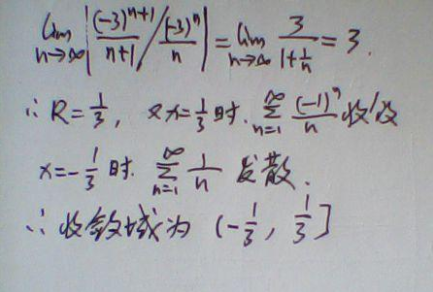 lim n→∞ |(-3)^{n+1}/(n+1) / (-3)^n/n| = lim n→∞ 3/(1+1/n) = 3.
∴ R = 1/3, 又x=1/3时. ∑_{n=1}^{∞} (-1)^n/n 收敛
x=-1/3时. ∑_{n=1}^{∞} 1/n 发散.
∴ 收敛域为 (-1/3, 1/3]